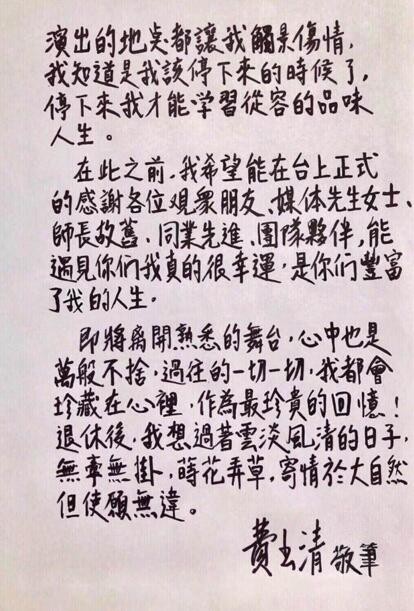 演出的地点都讓我觸景傷情，
我知道是我該停下來的時候了，
停下來我才能学習從容的品味
人生。
在此之前，我希望能在台上正式
的感謝各位观衆朋友、媒体先生女士、
師長故舊、同業先進、團隊夥伴，能
遇見你们我真的很幸運，是你们豐富
了我的人生。
即將离開熟悉的舞台，心中也是
萬般不捨，過往的一切一切，我都會
珍藏在心裡，作為最珍貴的回憶！
退休後，我想過著雲淡風清的日子，
無牽無掛，蒔花弄草，寄情於大自然
但使願無違。
費玉清 敬筆